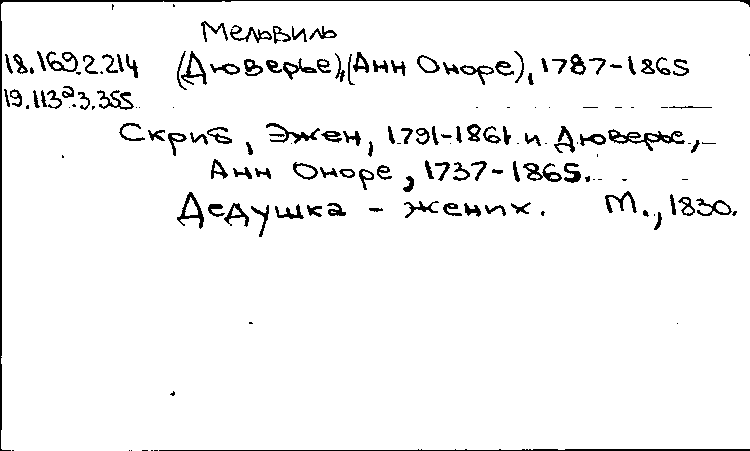 Мельвиль
18.169.2.214 (Дюверье), (Анн Оноре), 1787-1865
19.113а.3.355
Скриб, Эжен, 1791-1861 и Дюверье,
Анн Оноре, 1737-1865.
Дедушка - жених. М., 1830.